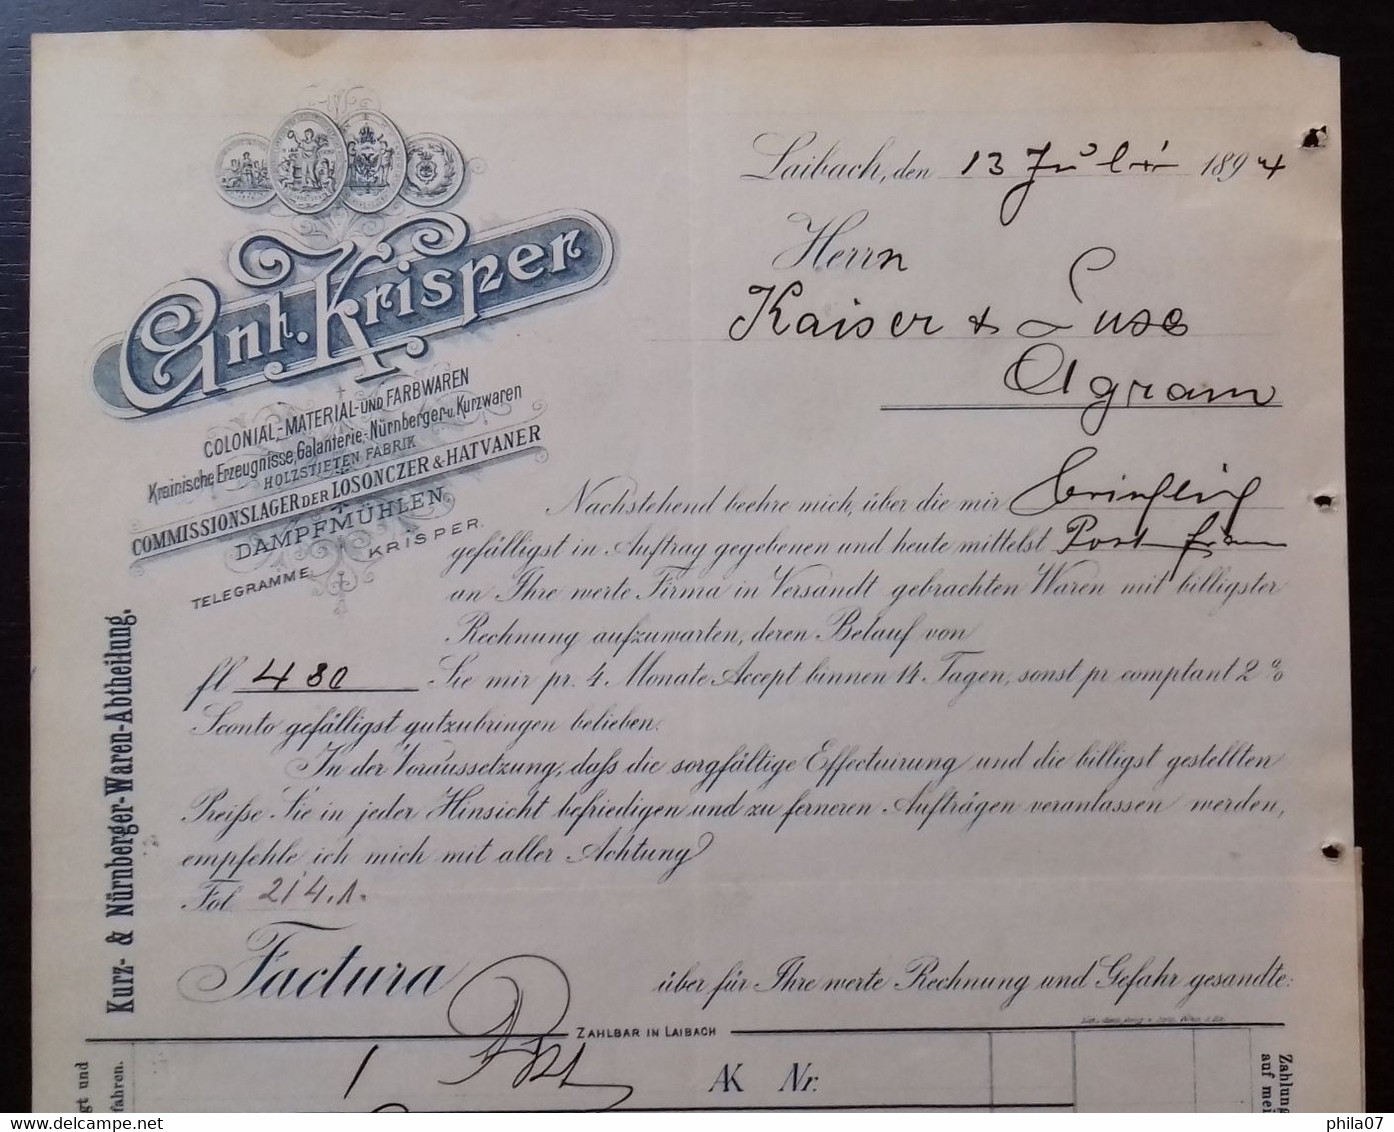 Ant. Krisper
COLONIAL-, MATERIAL- UND FARBWAREN
Krainische Erzeugnisse, Galanterie,- Nürnberger- u. Kurzwaren
HOLZSTIFTEN FABRIK
COMMISSIONSLAGER DER LOSONCZER & HATVANER
DAMPFMÜHLEN
TELEGRAMME: KRISPER.
Laibach, den 13 Juli 1894
Herrn
Kaiser &
Agram
Nachstehend beehre mich, über die mir brieflich
gefälligst in Auftrag gegebenen und heute mittelst Post
an Ihre werte Firma in Versandt gebrachten Waren mit billigster
Rechnung aufzuwarten, deren Belauf von
fl 4 80 Sie mir pr. 4 Monate Accept binnen 14 Tagen, sonst pr comptant 2%
Sconto gefälligst gutzubringen belieben.
In der Voraussetzung, daß die sorgfältige Effectuirung und die billigst gestellten
Preiße Sie in jeder Hinsicht befriedigen und zu ferneren Aufträgen veranlassen werden,
empfehle ich mich mit aller Achtung
Fol. 214.1.
Factura über für Ihre werte Rechnung und Gefahr gesandte:
ZAHLBAR IN LAIBACH
1 Post AK Nr.
Kurz- & Nürnberger-Waren-Abtheilung.
gt und
fahren.
Zahlung
auf mei
delcampe.net
phila07